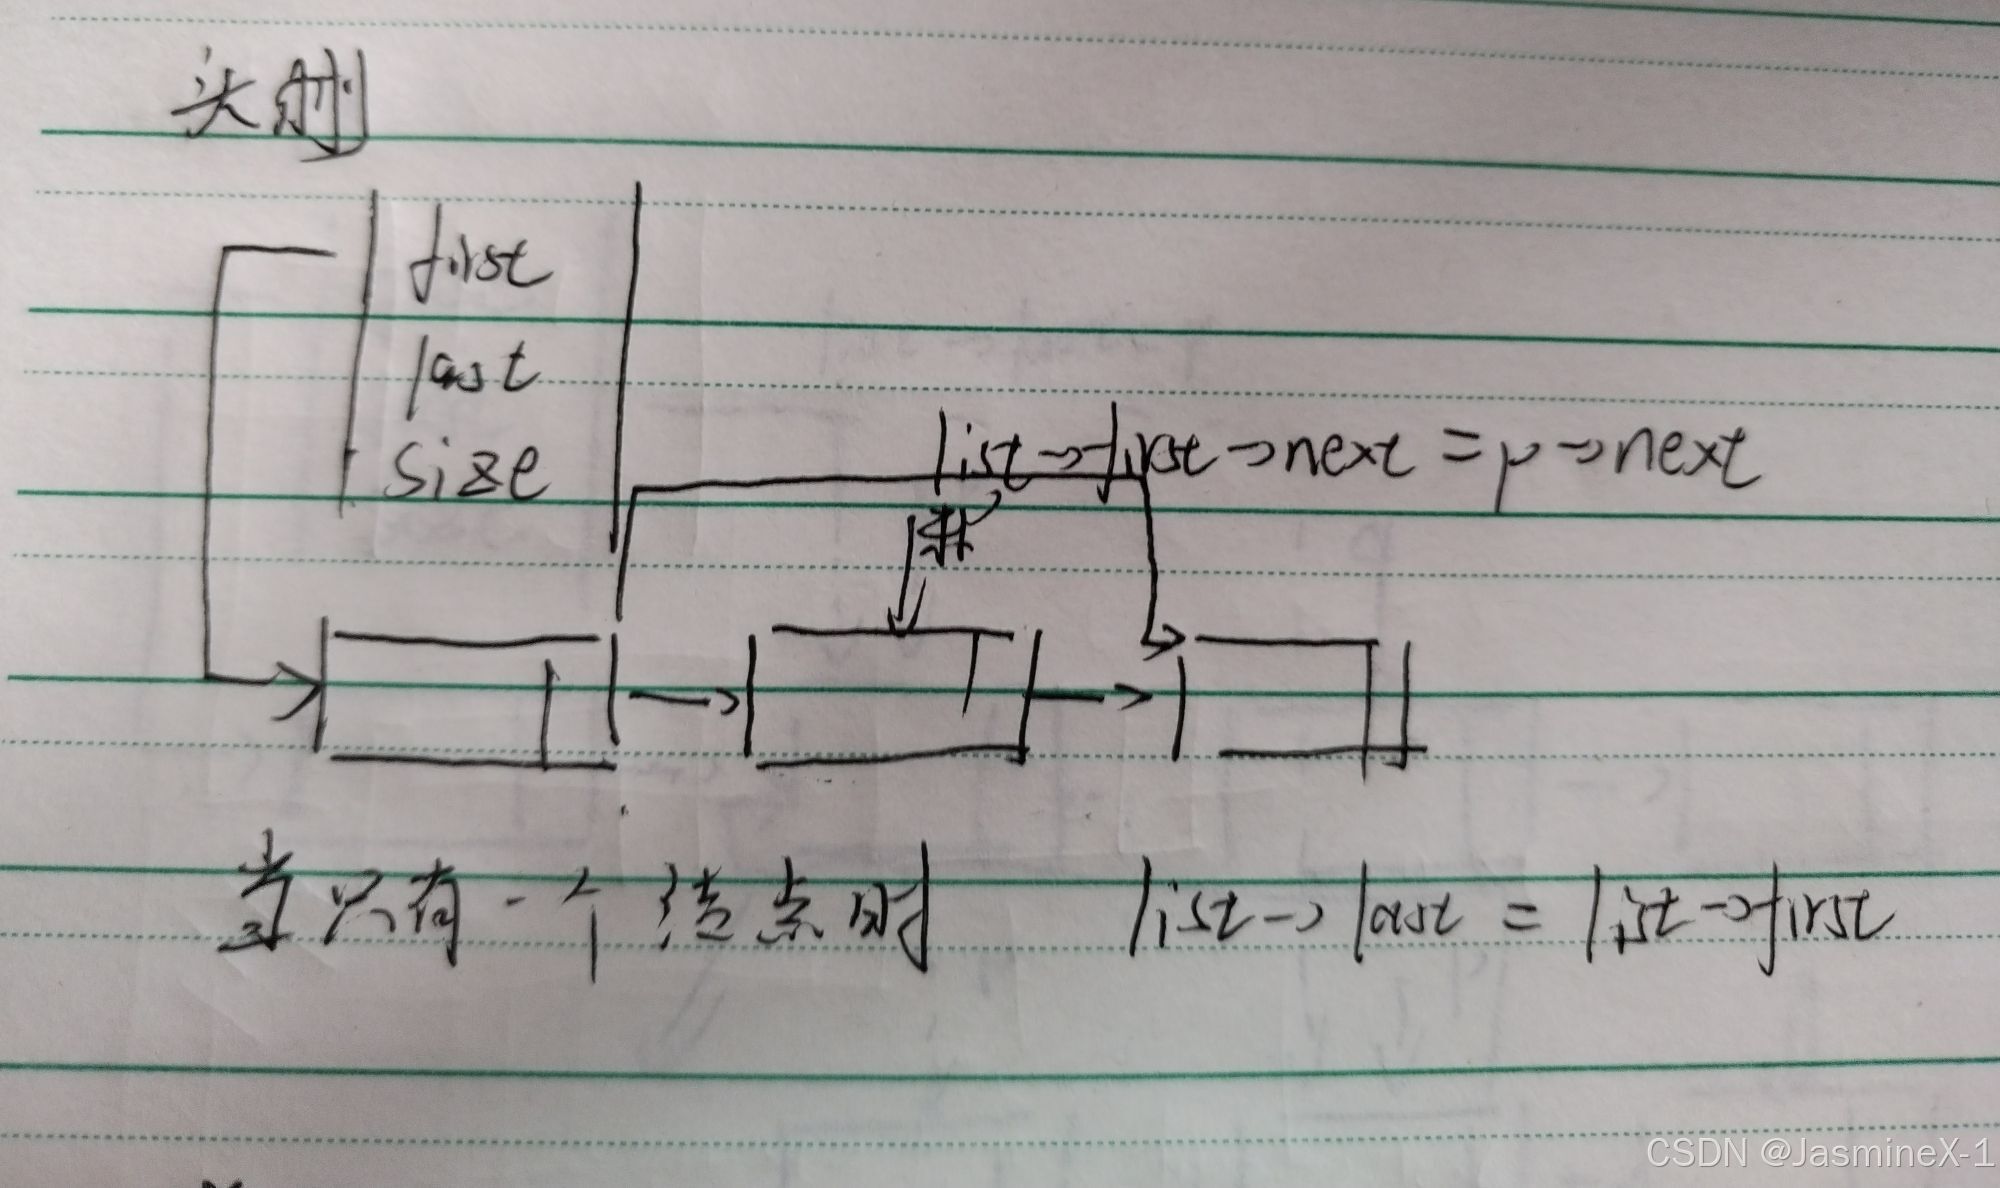 头删
first
last
size
list->first->next = p->next
当只有一个结点时 list->last = list->first
CSDN @JasmineX-1